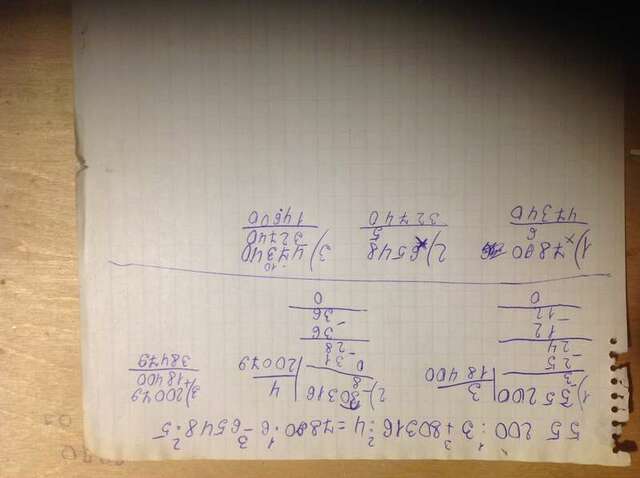 55 200 : 3 + 80316 : 4 = 7890 · 6 - 6548 · 5
1) 55200 | 3
18400
3
25
24
12
12
0
2) 80316 | 4
20079
8
0
31
28
36
36
0
3) 20079
+ 18400
38479
1) 7890
× 6
47340
2) 6548
× 5
32740
3) 47340
- 32740
14600